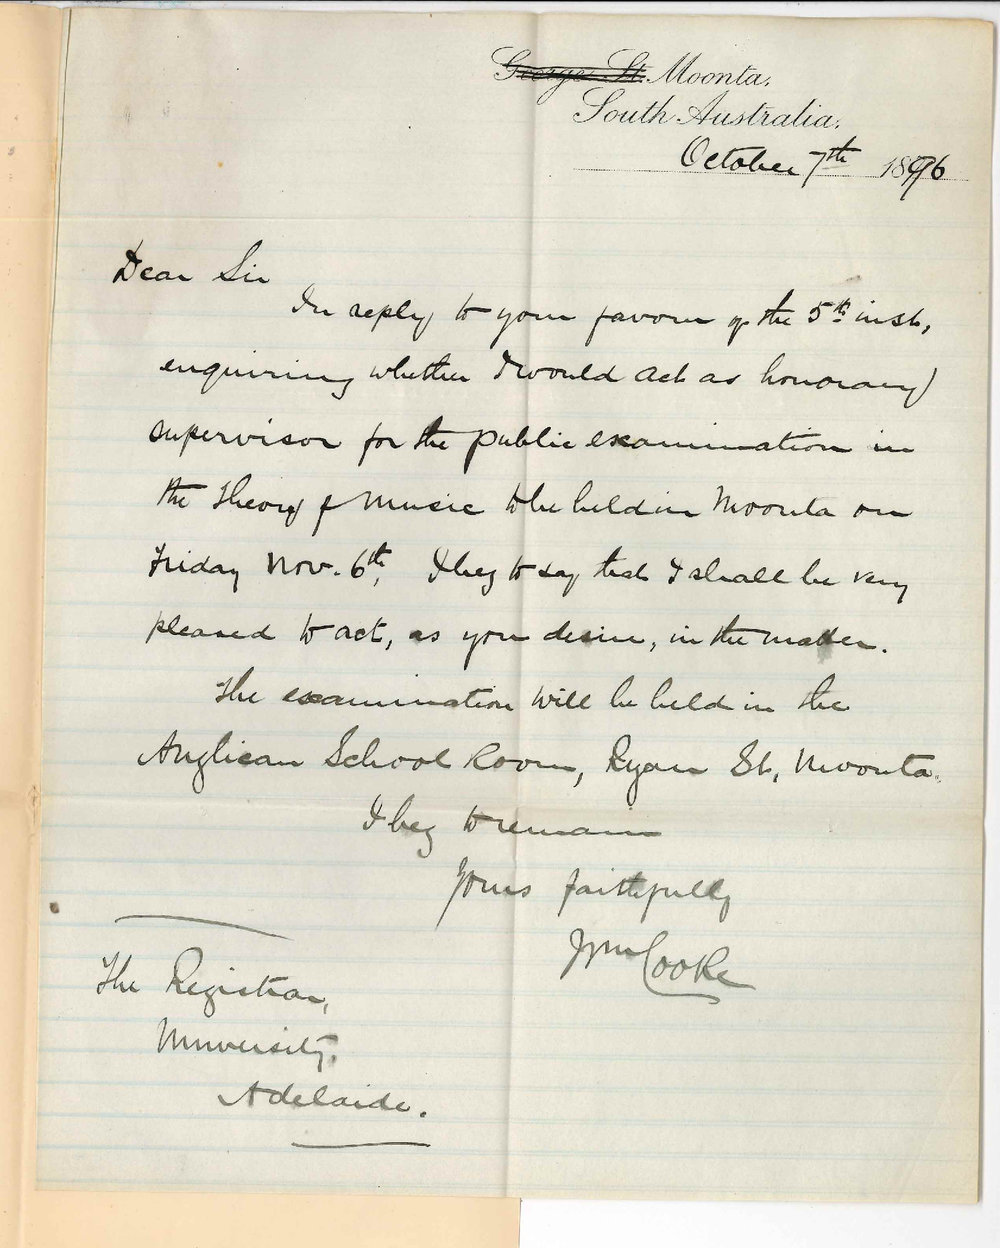 George St. Moonta,
South Australia,
October 7th 1896
Dear Sir
In reply to your favour of the 5th inst,
enquiring whether I would act as honorary
supervisor for the public examination in
the Theory of Music to be held in Moonta on
Friday Nov. 6th, I beg to say that I shall be very
pleased to act, as you desire, in the matter.
The examination will be held in the
Anglican School Room, Ryan St, Moonta.
I beg to remain
Yours faithfully
Cooke
The Registrar,
University,
Adelaide.